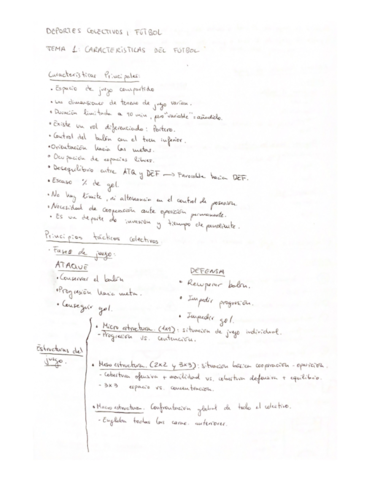 DEPORTES COLECTIVOS, FÚTBOL
TEMA 1: CARACTERÍSTICAS DEL FÚTBOL
Características Principales:
• Espacio de juego compartido
• Las dimensiones de terreno de juego varían.
• Duración limitada a 90 min, pero "variable": añadido.
• Existe un rol diferenciado: Portero.
• Control del balón con el tren inferior.
• Orientación hacia las metas.
• Ocupación de espacios libres.
• Desequilibrio entre ATQ y DEF → Favorable hacia DEF.
• Escaso % de gol.
• No hay límite, ni alternancia en el control de posesión
• Necesidad de cooperación ante oposición permanente.
• Es un deporte de invasión y tiempo de
Principios tácticos colectivos.
- Fases de juego:
ATAQUE
DEFENSA
• Conservar el balón
• Recuperar balón.
• Progresión hacia meta.
• Impedir progresión.
• Conseguir gol.
• Impedir gol.
Estructuras del juego.
• Micro estructura (1x1): situación de juego individual.
- Progresión vs. contención.
• Meso estructura. (2x2 y 3x3): situación básica cooperación - oposición.
- cobertura ofensiva + movilidad vs. cobertura defensiva + equilibrio.
- 3x3 espacio vs. concentración.
• Macro estructura: Confrontación global de todo el colectivo.
- Engloba todas las anteriores.